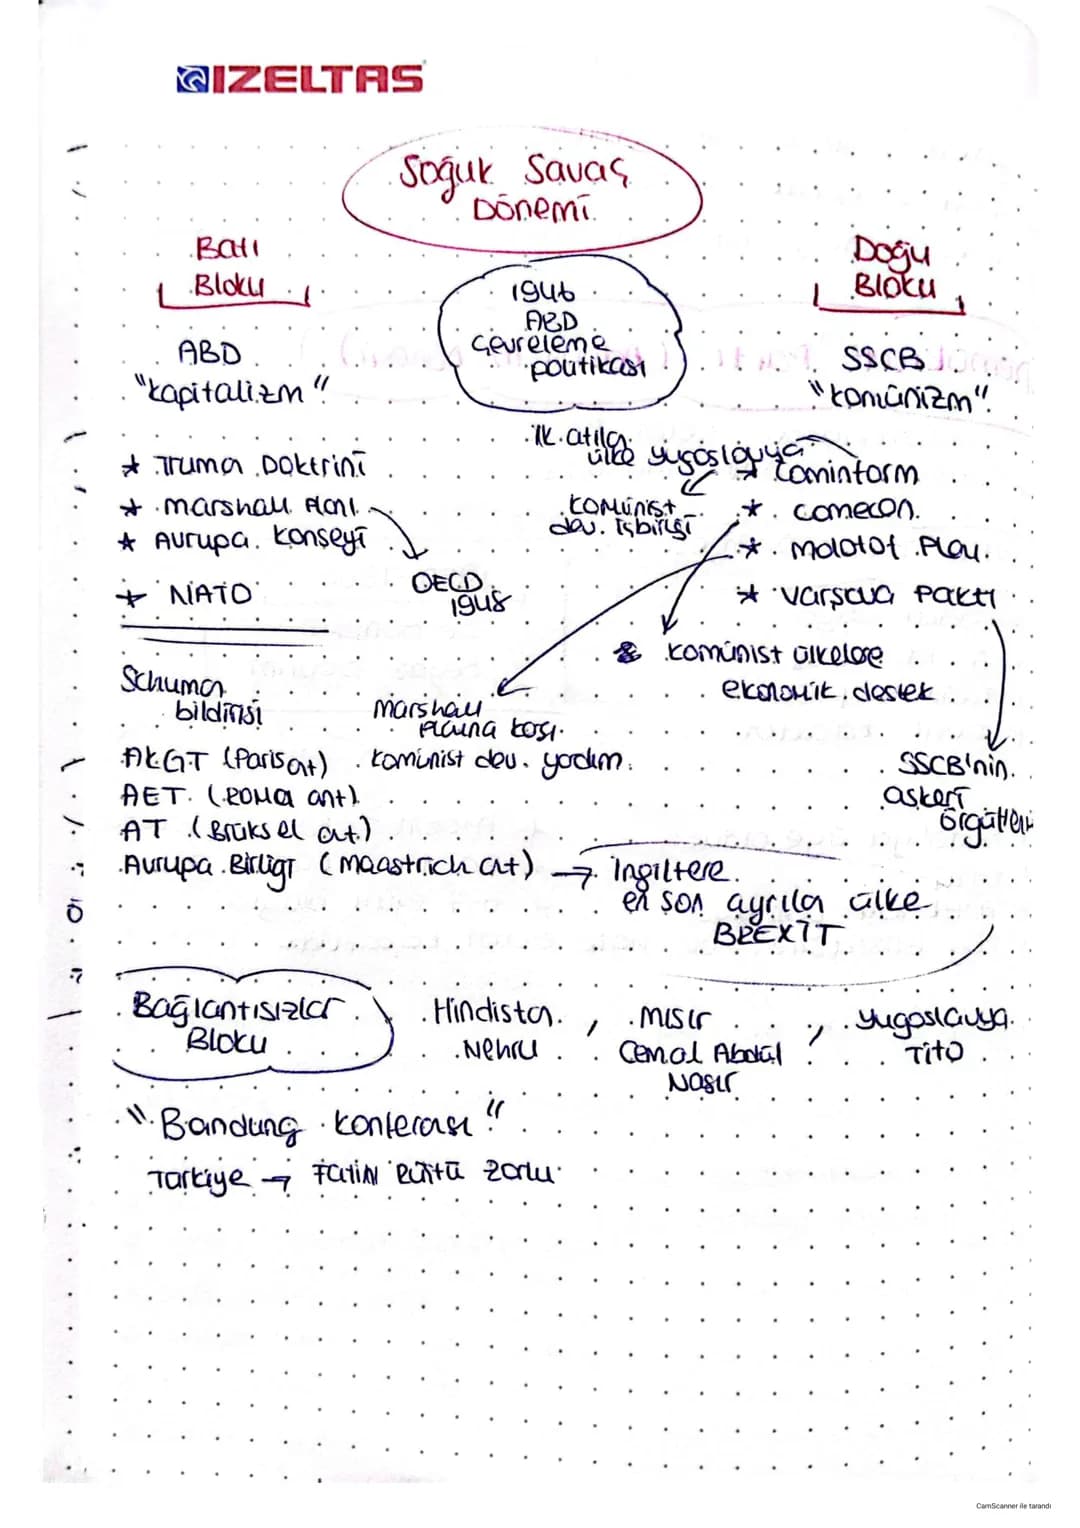 IZELTAS
Soğuk Savaş
Dönemi
Batı
Bloku
Doğu
Bloku
1946
ABD
Çevreleme
politikası
ABD
"kapitalizm"
SSCB
"komünizm"
ilk atıla
ülke yugoslavya
* Truma Doktrini
* marshall planı
* Avrupa konseyi
* NATO
OECD
1948
komünist
dev. işbirliği
* Cominform
* comecon
* molotof Planı
* varşova paktı
komünist ülkelere
ekonomik destek
Schuman
bildirisi
marshall
planına karşı
komünist dev. yardım.
SSCB'nin
askeri
örgütlen
AKGT (Paris ant)
AET (ROMA ant)
AT (Brüksel ant.)
Avrupa Birliği (Maastrich ant) → İngiltere
en son ayrıla ülke
BREXİT
Bağlantısızlar
Bloku
Hindistan,
Nehru
MISIr,
Cemal Abdül
Nasır
yugoslavya
Tito
"Bandung konferası"
Türkiye → FATİN Rüştü Zorlu
CamScanner ile tarandı